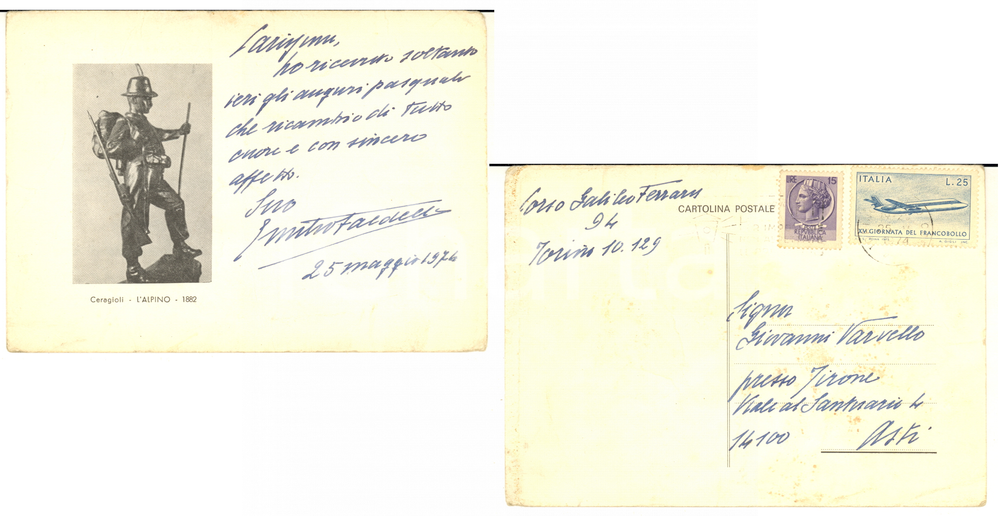 Carissimo,
ho ricevuto soltanto
ieri gli auguri pasquali
che ricambio di tutto
cuore e con sincero
affetto.
Suo
25 maggio 1974
Ceragioli - L'ALPINO - 1882
Corso Galileo Ferraris
94
Torino 10.129
CARTOLINA POSTALE
LIRE 15
REPUBBLICA
ITALIANA
ITALIA L. 25
XV GIORNATA DEL FRANCOBOLLO
Signor
Giovanni Varvello
presso Tirone
Viale al Santuario 4
14100 Asti